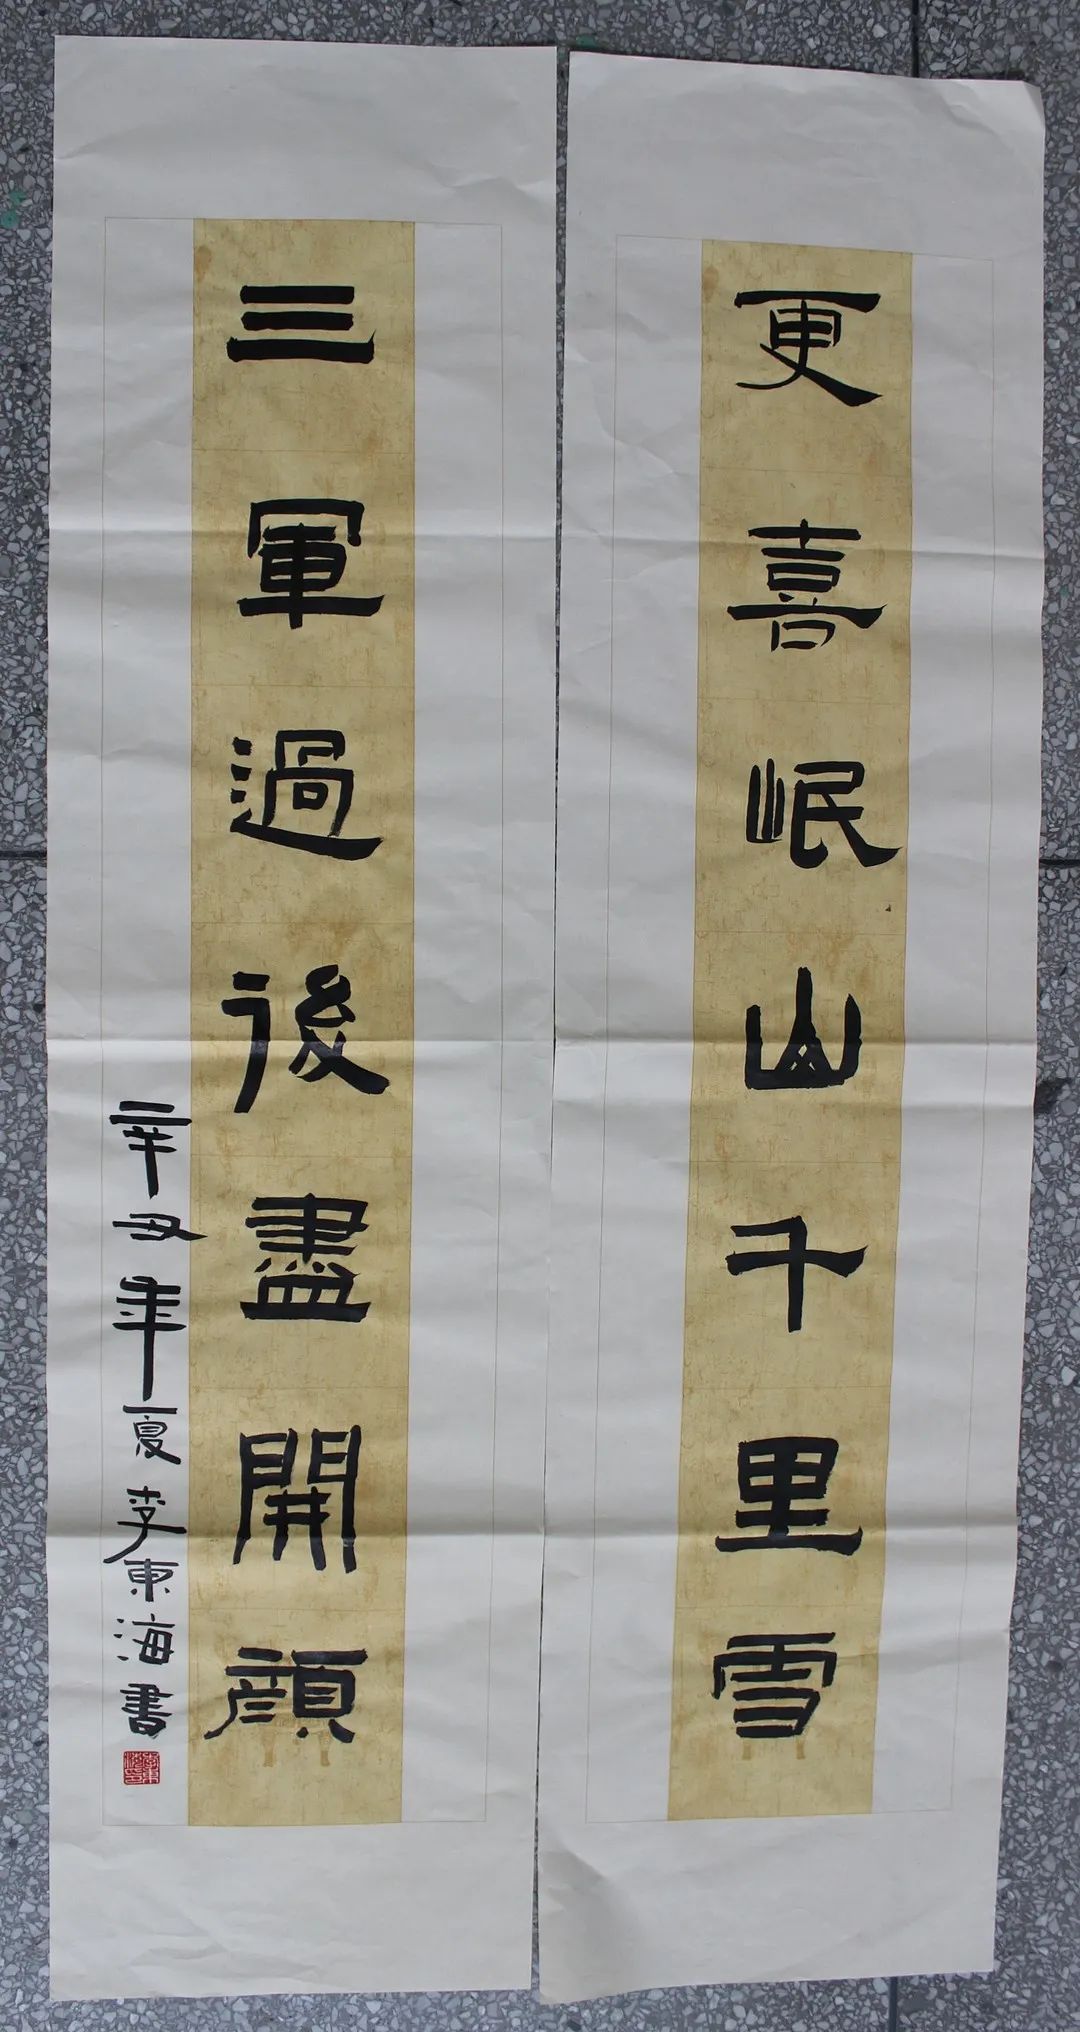 更喜岷山千里雪
三軍過後盡開顔
辛丑年夏李東海書